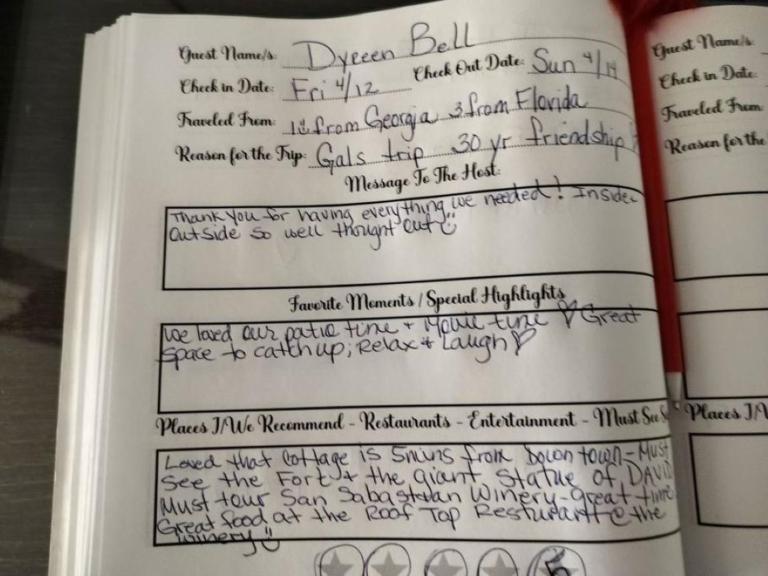 Guest Name/s: Dyreen Bell
Check in Date: Fri 4/12 Check Out Date: Sun 4/14
Traveled From: from Georgia 3 from Florida
Reason for the Trip: Gals trip 30 yr friendship
Message To The Host:
Thank you for having everything we needed! Inside
outside so well thought out
Favorite Moments / Special Highlights
We loved our patio time + Movie time ♡ Great
space to catch up; Relax + Laugh ♡
Places I/We Recommend - Restaurants - Entertainment - Must See
Loved that cottage is 5mins from Downtown - Must
see the Fort + the giant Statue of DAVID
Must tour San Sabastian Winery - great time
Great food at the Roof Top Resturant @ the
winery
5
Guest Name/s:
Check in Date:
Traveled From:
Reason for the
Places I/W